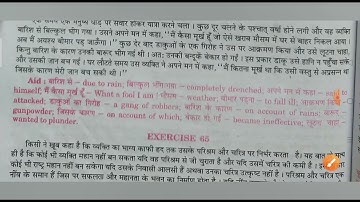 एक समय एक मनुष्य घोड़े पर सवार होकर यात्रा करने चला। कुछ दूर चलने के पश्चात् वर्षा होने लगी और वह व्यक्ति
बारिश से बिल्कुल भीग गया। उसने अपने मन में कहा, "मैं कैसा मूर्ख हूँ जो ऐसे खराब मौसम में घर से बाहर निकल आया।
अब मैं अवश्य बीमार पड़ जाऊँगा।" कुछ देर बाद डाकुओं के एक गिरोह ने उस पर आक्रमण किया और उसे लूटना चाहा,
किन्तु बारिश के कारण उनकी बारूद भीग गई थी। अतः उनकी बन्दूकें बेकार हो गईं। इस प्रकार डाकू उसे हानि न पहुँचा सके
और उसकी जान बच गई। घर लौटते समय उस व्यक्ति ने अपने मन में कहा, "मैं कितना मूर्ख था कि उसी वस्तु से अप्रसन्न था
जिसके कारण मेरी जान बच सकी थी।"
Aid : बारिश से — due to rain; बिल्कुल भीगना — completely drenched; अपने मन में कहा — said to
himself; मैं कैसा मूर्ख हूँ — What a fool I am ! मौसम — weather; बीमार पड़ना — to fall ill; आक्रमण किया —
attacked; डाकुओं का गिरोह — a gang of robbers; बारिश के कारण — on account of rain; बारूद —
gunpowder; जिसके कारण — on account of which; बेकार हो गई — became ineffective; लूटना चाहा —
wanted to plunder.
EXERCISE 65
किसी ने खूब कहा है कि व्यक्ति का भाग्य काफी हद तक उसके परिश्रम और चरित्र पर निर्भर करता है। यह बात
ही है कि कोई भी व्यक्ति महान नहीं बन सकता यदि वह परिश्रम से जी चुराता है और यदि उसमें चरित्र की कमी है। इस
कोई भी राष्ट्र महान नहीं बन सकेगा यदि उसके निवासी आलसी हैं अथवा उनका चरित्र उत्कृष्ट नहीं है। परिश्रम और चरित्र एक
नींव के समान हैं जिस पर सफलता और महानता के भवन का निर्माण होता है।